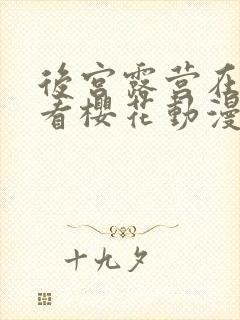 後宮露营在
看櫻花動漫
十九夕